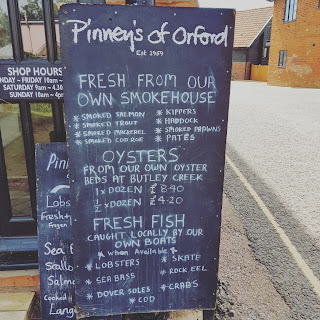 Pinney's of Orford
Est 1959
FRESH FROM OUR
OWN SMOKEHOUSE
* SMOKED SALMON * KIPPERS
* SMOKED TROUT * HADDOCK
* SMOKED MACKEREL * SMOKED PRAWNS
* SMOKED COD ROE * PATÉS
OYSTERS
FROM OUR OWN OYSTER
BEDS AT BUTLEY CREEK
1 x DOZEN £8.40
1/2 x DOZEN £4.20
FRESH FISH
CAUGHT LOCALLY BY OUR
OWN BOATS
* When Available *
* LOBSTERS * SKATE
* SEA BASS * ROCK EEL
* DOVER SOLES * CRABS
* COD
SHOP HOURS
- FRIDAY 10am -
SATURDAY 9am - 4.30
SUNDAY 10am - 4pm
Pin
Lobs
Fresh +
Frozen
Sea B
Scallo
Salmo
Cooked
Lang